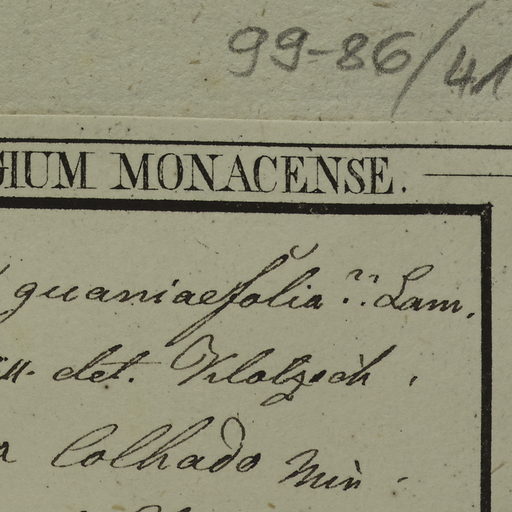 99-86/41
GIUM MONACENSE.
guaniaefolia ?? Lam.
det. Klotzsch.
Colhado Min.